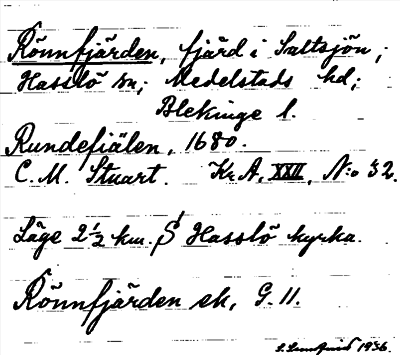 Rönnfjärden, fjärd i Saltsjön,;
Hasslö sn; Medelstads hd;
Blekinge l.
Rundefiälen, 1680.
C. M. Stuart. Kr. A. XXII, N:o 32.
Läge 2½ km. S Hasslö kyrka.
Rönnfjärden ek, G. 11.
1936.